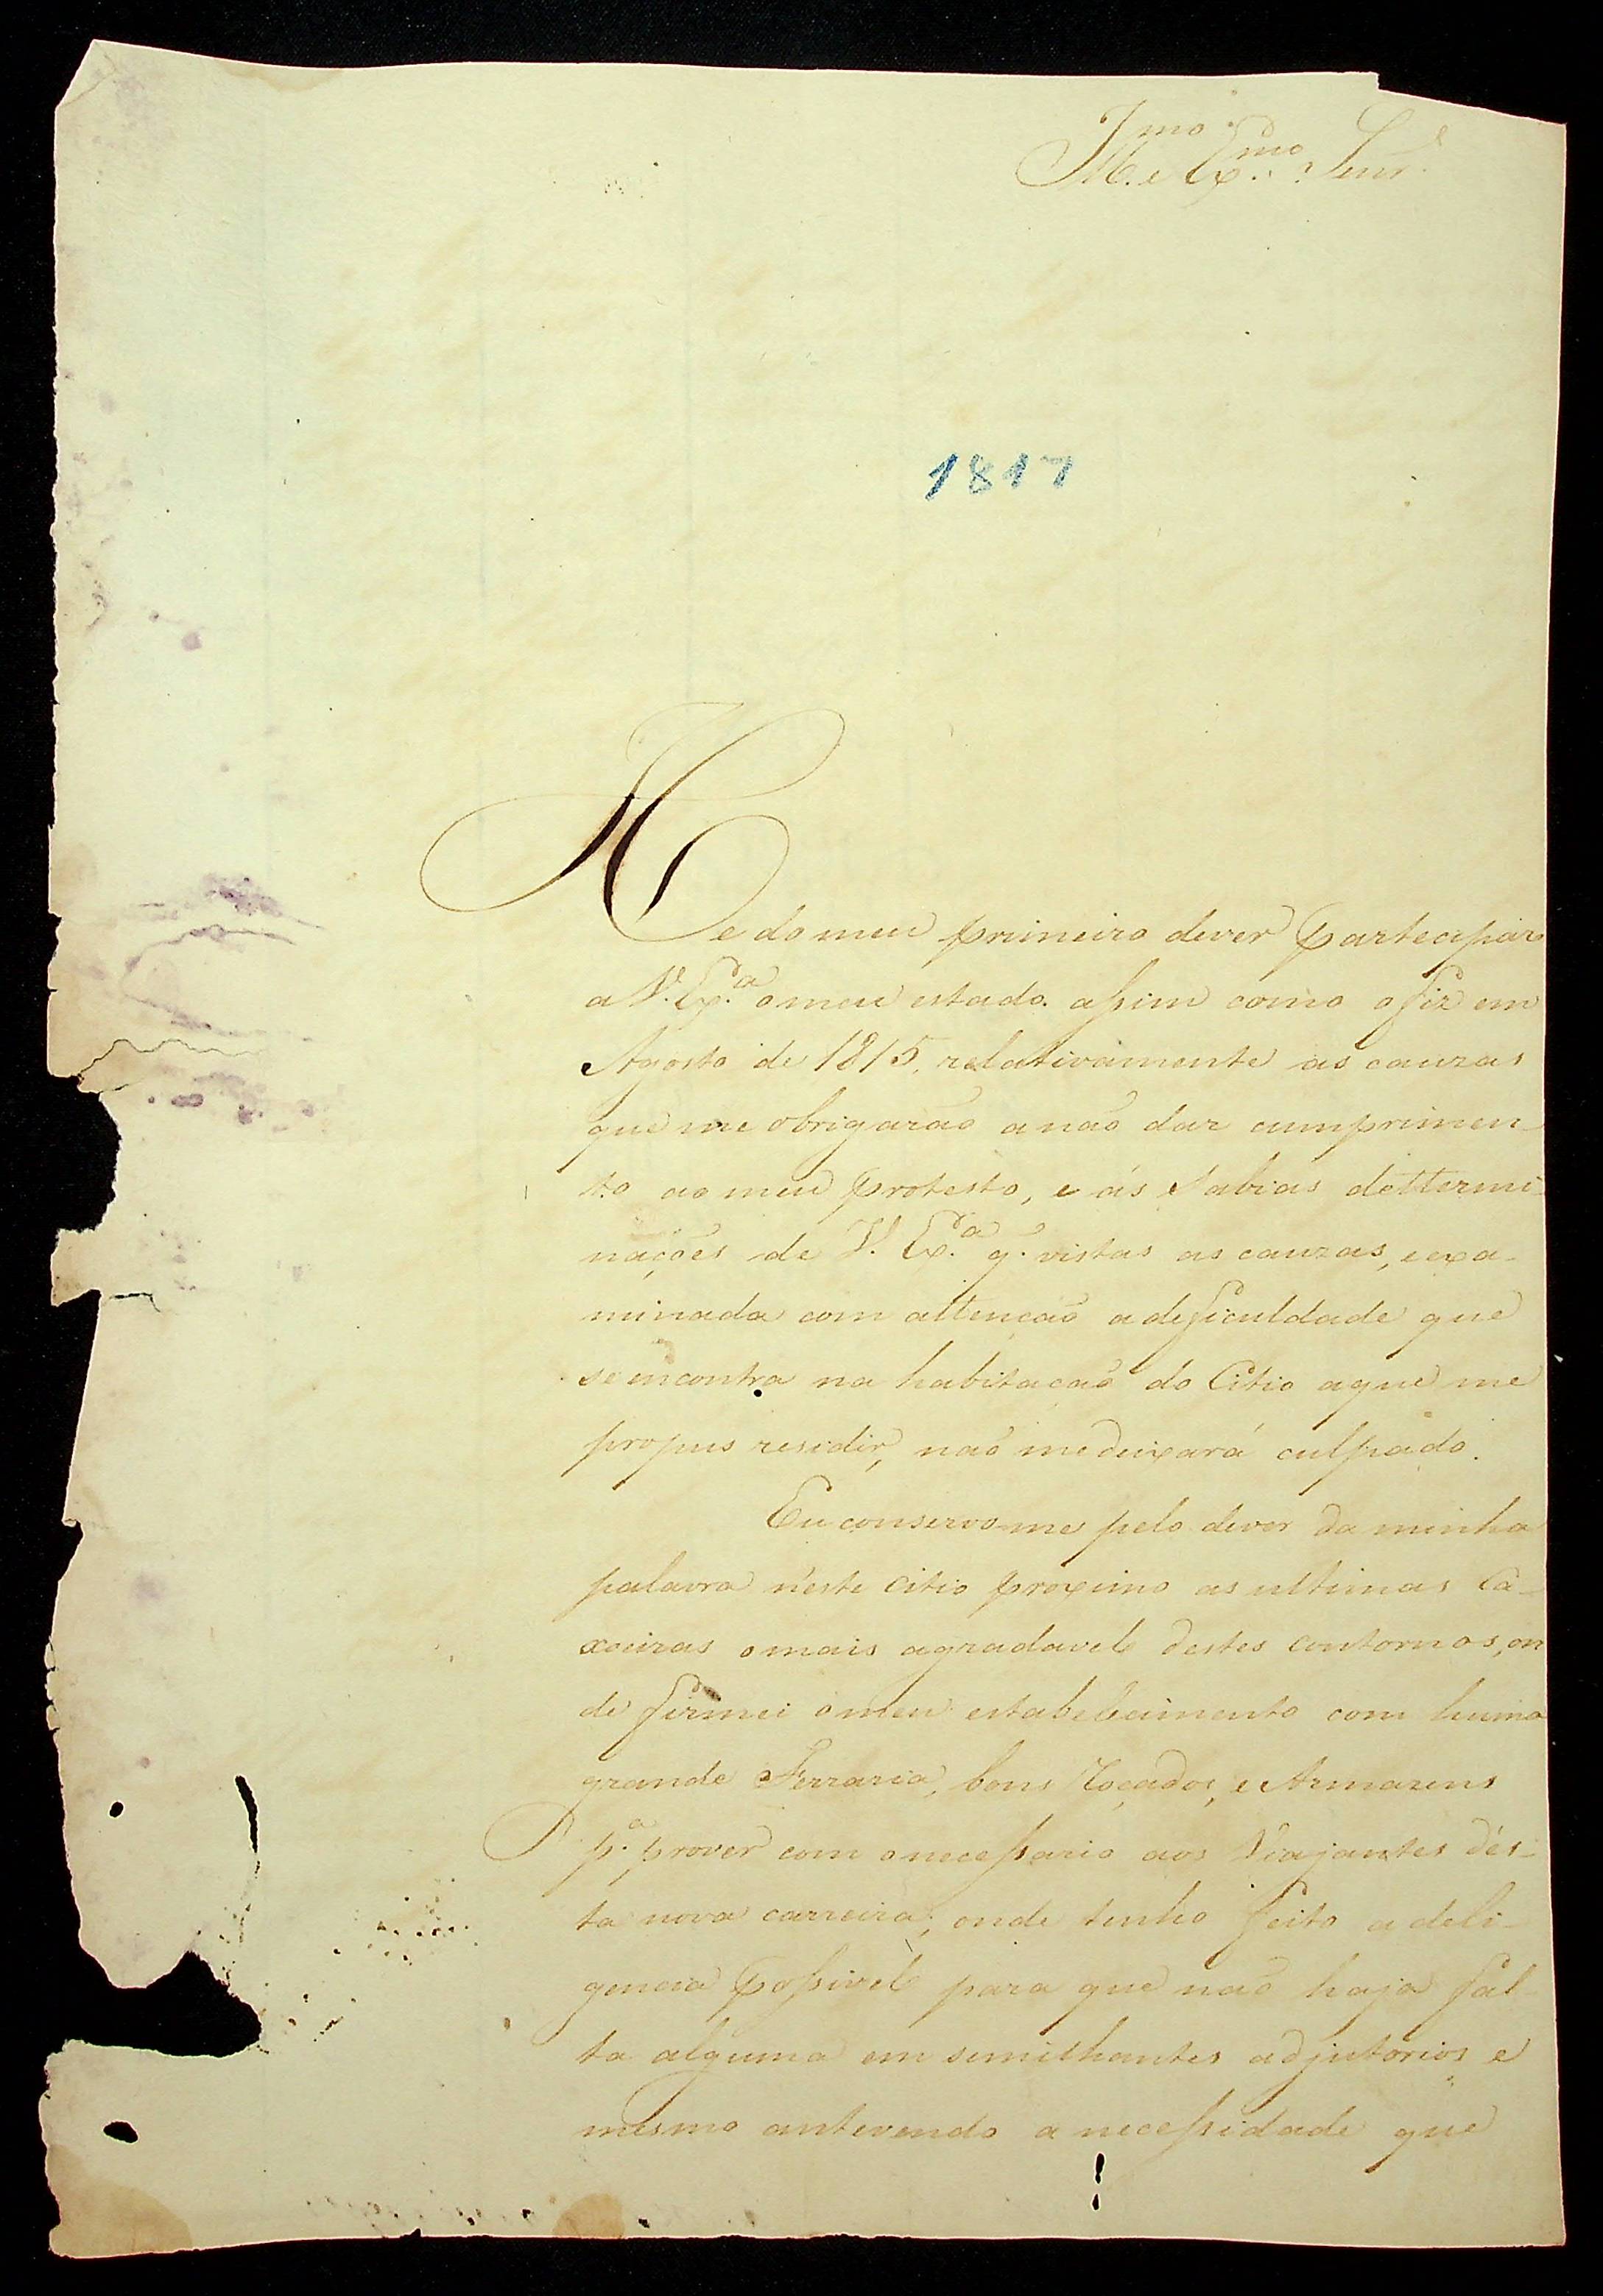 Ill.mo e Ex.mo Senr.
1817
He do meu primeiro dever partecipar
a V. Ex.a o meu estado. assim como o fiz em
Agosto de 1815, relativamente as cauzas
que me obrigaraõ a naõ dar cumprimen-
to ao meu protesto, e ás Sabias dettermi-
nações de V. Ex.a q. vistas as cauzas, e exa-
minada com attençaõ a deficuldade que
se encontra na habitaçaõ do Citio a que me
propus residir, naõ me deixará culpado.
Eu conservo-me pelo dever da minha
palavra n'este citio proximo as ultimas Ca-
xoeiras o mais agradavel destes contornos, on
de firmei o meu estabelecimento com huma
grande Ferraria, bons Roçados, e Armazens
p.a prover com o necessario aos Viajantes des-
ta nova carreira; onde tenho feito a deli-
gencia possivel para que naõ haja fal-
ta alguma em similhantes adjutorios e
mesmo antevendo a necessidade que